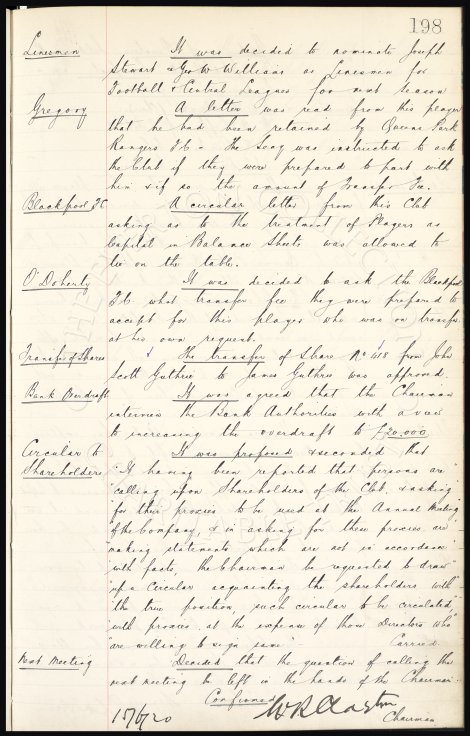 198
Linesmen It was decided to nominate Joseph
Stewart & Geo W Williams as Linesmen for
Football & Central Leagues for next season
Gregory A letter was read from this player
that he had been retained by Queens Park
Rangers FC - The Secy was instructed to ask
the Club if they were prepared to part with
him & if so the amount of Transfer Fee.
Blackpool FC A circular letter from this Club
asking as to the treatment of Players as
Capital in Balance Sheets was allowed to
lie on the table.
O'Doherty It was decided to ask the Blackpool
FC what transfer fee they were prepared to
accept for this player who was on transfer
at his own request.
Transfer of Shares The transfer of Share No 418 from John
Scott Guthrie to James Guthrie was approved.
Bank Overdraft It was agreed that the Chairman
interview the Bank Authorities with a view
to increasing the overdraft to £20,000
Circular to It was proposed & seconded that
Shareholders "It having been reported that persons are"
"calling upon Shareholders of the Club, & asking"
"for their proxies to be used at the Annual Meeting"
"of the Company, & in asking for these proxies are"
"making statements which are not in accordance"
"with facts, the Chairman be requested to draw"
"up a Circular acquainting the shareholders with"
"the true position, such circular to be circulated"
"with proxies, at the expense of those Directors who"
"are willing to sign same" - Carried
Next Meeting Decided that the question of calling the
next meeting be left in the hands of the Chairman.
Confirmed
15/6/20 W R Clayton
Chairman